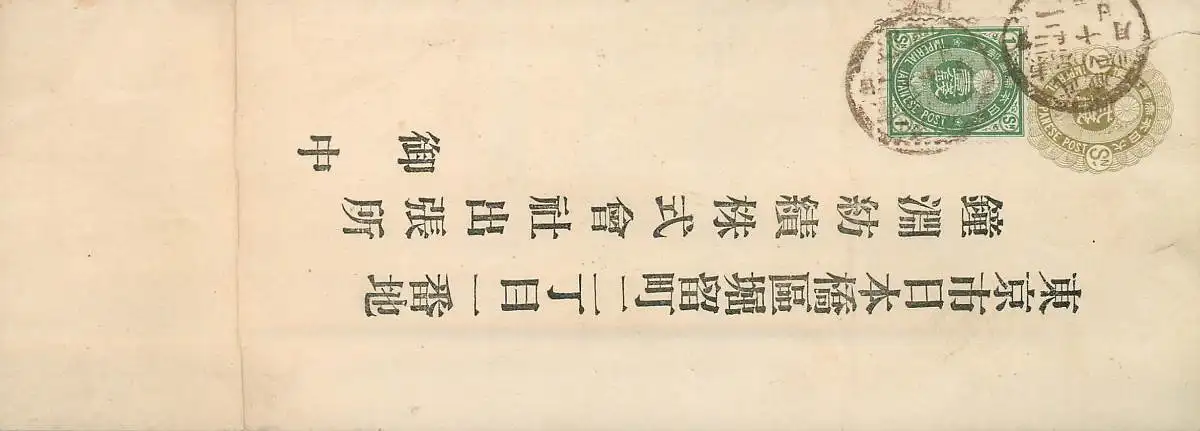 東京市日本橋區堀留町二丁目一番地
鐘淵紡績株式會社出張所
御中
IMPERIAL JAPANESE POST
1 Sn
JAPANESE POST
Sn